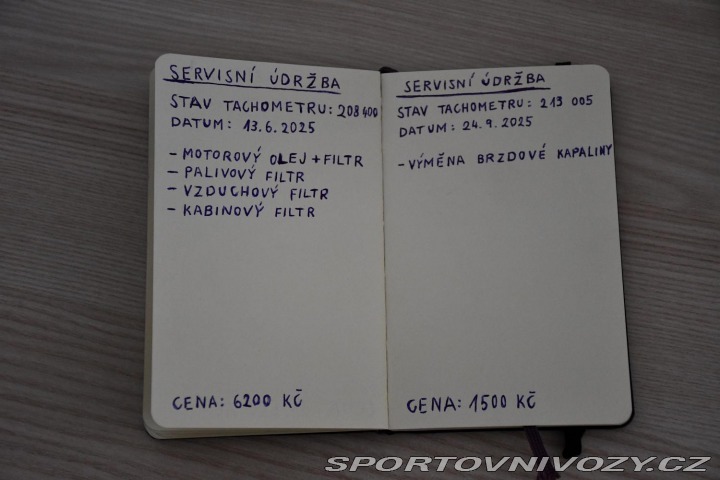 SERVISNÍ ÚDRŽBA
STAV TACHOMETRU: 208 400
DATUM: 13.6.2025
- MOTOROVÝ OLEJ + FILTR
- PALIVOVÝ FILTR
- VZDUCHOVÝ FILTR
- KABINOVÝ FILTR
CENA: 6200 KČ
SERVISNÍ ÚDRŽBA
STAV TACHOMETRU: 213 005
DATUM: 24.9.2025
- VÝMĚNA BRZDOVÉ KAPALINY
CENA: 1500 KČ
SPORTOVNIVOZY.CZ